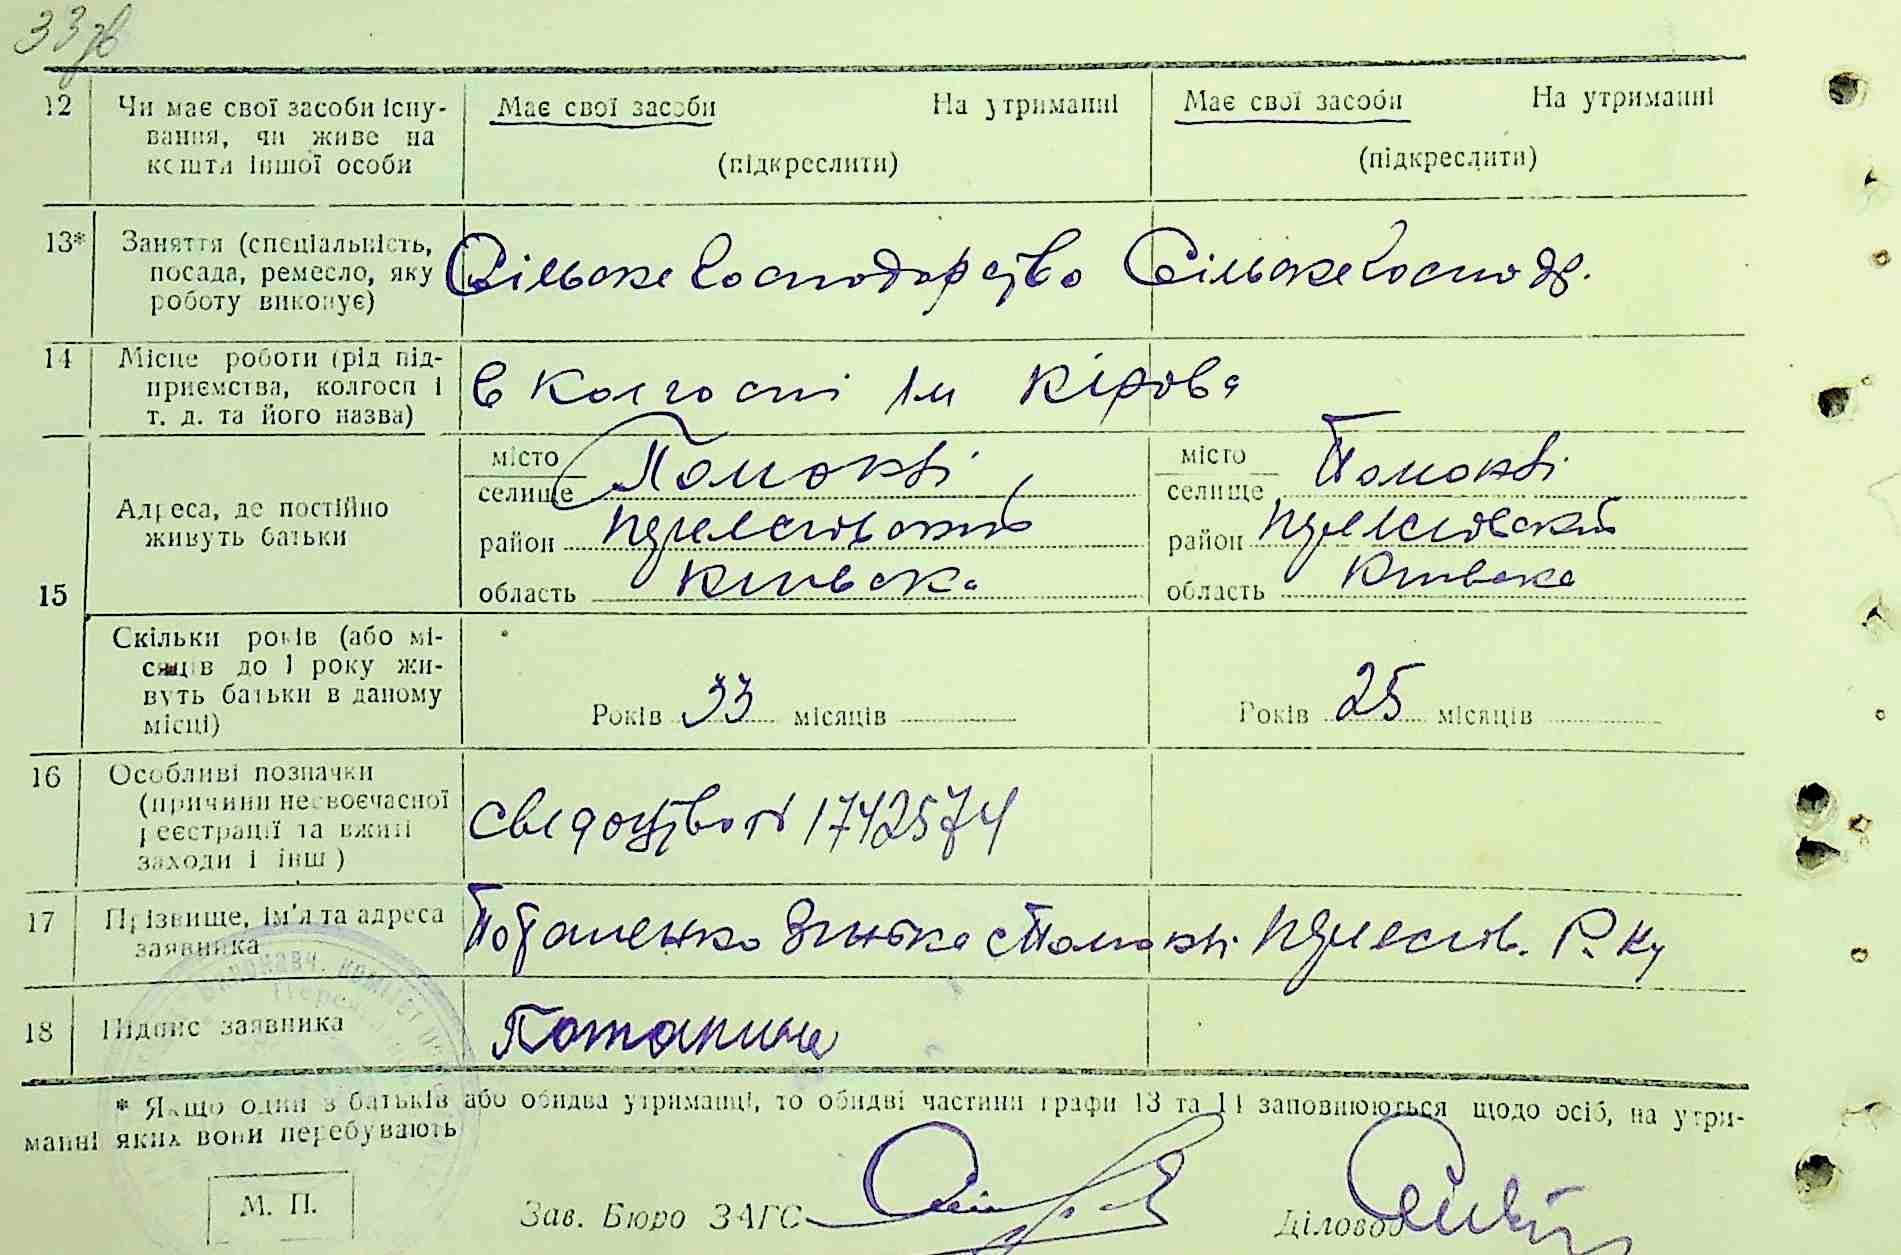 33 зв
12 Чи має свої засоби існу- Має свої засоби На утриманні Має свої засоби На утриманні
вання, чи живе на
кошти іншої особи (підкреслити) (підкреслити)
13* Заняття (спеціальність,
посада, ремесло, яку Сільске Господарство Сільске Господ.
роботу виконує)
14 Місце роботи (рід під-
приємства, колгосп і в Колгоспі Ім Кірова
т. д. та його назва)
15 Адреса, де постійно
живуть батьки
місто
селище Помоклі
район
область Київска
місто
селище Помоклі
район
область Київска
Скільки років (або мі-
сяців до 1 року жи-
вуть батьки в даному
місці)
Років 33 місяців Років 25 місяців
16 Особливі позначки
(причини несвоєчасної
реєстрації та вжиті
заходи і інш) сведоцтво № 1742574
17 Прізвище, ім'я та адреса
заявника с Помоклі
18 Підпис заявника
* Якщо один з батьків або обидва утриманці, то обидві частини графи 13 та 14 заповнюються щодо осіб, на утри-
манні яких вони перебувають
М. П. Зав. Бюро ЗАГС Діловод